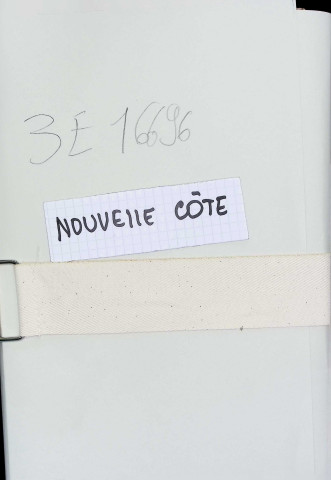 3E 16696
NOUVEllE CÔTE